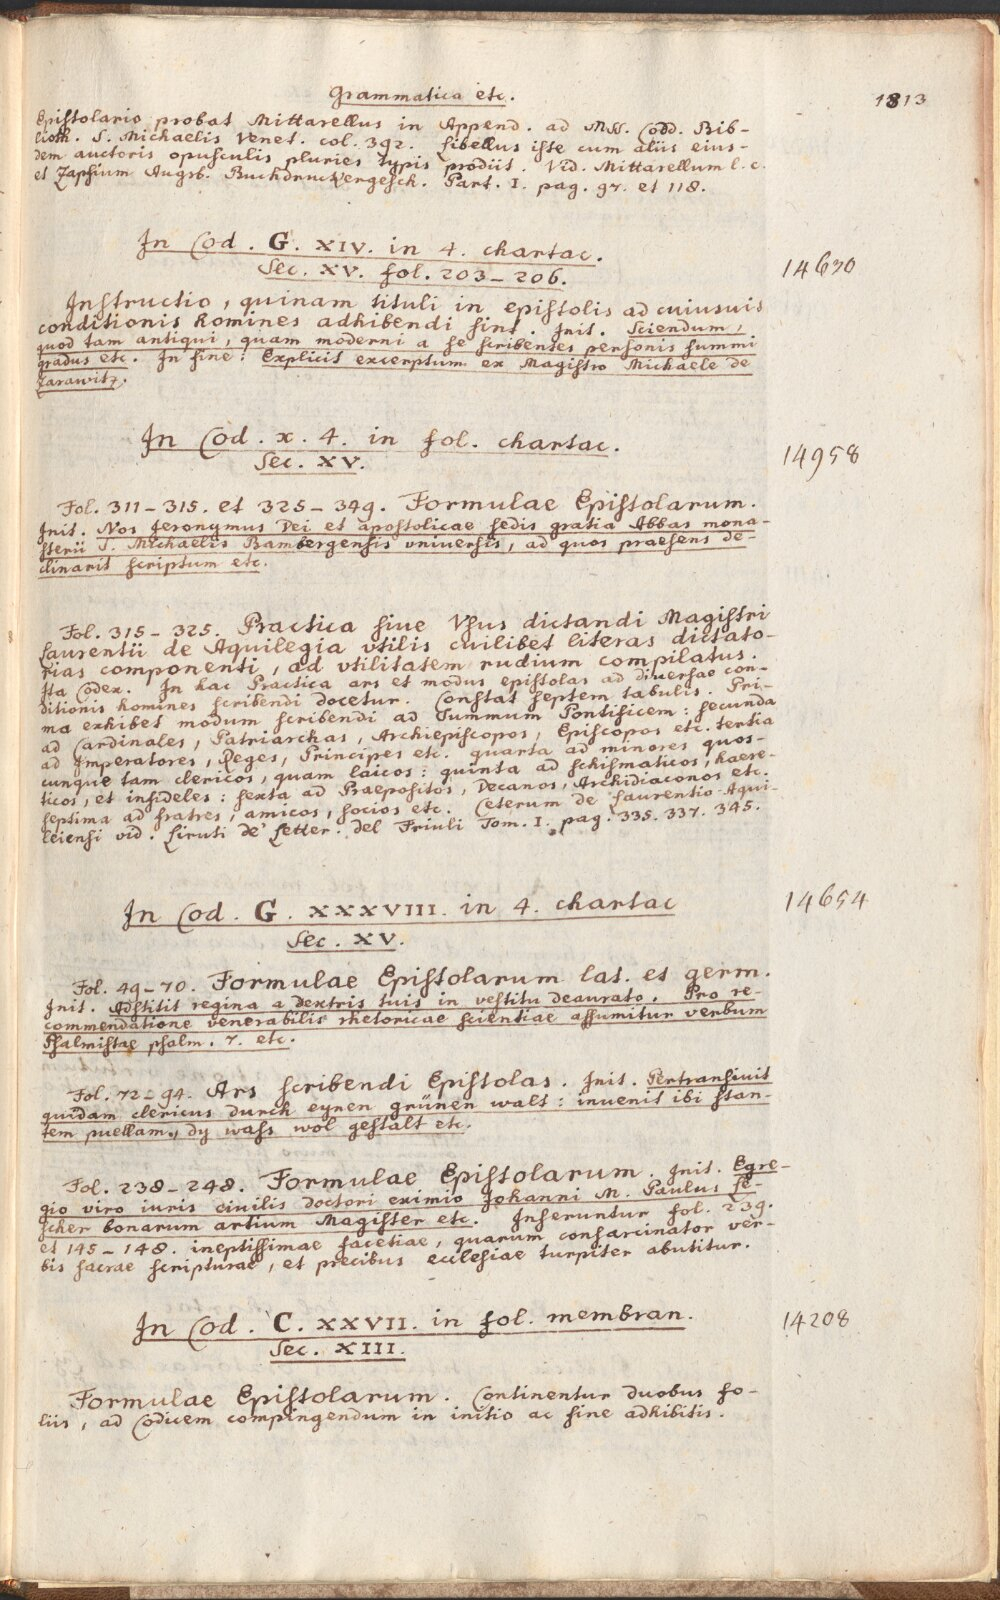 Grammatica etc.
1313
Epistolario probat Mittarellus in Append. ad MSS. Codd. Bib-
lioth. S. Michaelis Venet. col. 392. Libellus iste cum aliis eius-
dem auctoris opusculis pluries typis prodiit. Vid. Mittarellum l. c.
et Zapfium Augsb. Buchdruckergesch. Part. I. pag. 97. et 118.
In Cod. G. XIV. in 4. chartac.
14630
Sec. XV. fol. 203-206.
Instructio, quinam tituli in epistolis ad cuiusuis
conditionis homines adhibendi sint. Init. Sciendum,
quod tam antiqui, quam moderni a se scribentes personis summi
gradus etc. In fine: Explicit excerptum ex Magistro Michaele de
Zarawitz.
In Cod. x. 4. in fol. chartac.
14958
Sec. XV.
Fol. 311-315. et 325-349. Formulae Epistolarum.
Init. Nos Jeronymus Dei et apostolicae sedis gratia Abbas mona-
sterii S. Michaelis Bambergensis vniuersis, ad quos praesens de-
clinarit scriptum etc.
Fol. 315-325. Practica siue Vsus dictandi Magistri
Laurentii de Aquilegia vtilis cuilibet literas dictato-
rias componenti, ad vtilitatem rudium compilatus.
Ita Codex. In hac Practica ars et modus epistolas ad diuersae con-
ditionis homines scribendi docetur. Constat septem tabulis. Pri-
ma exhibet modum scribendi ad Summum Pontificem: secunda
ad Cardinales, Patriarchas, Archiepiscopos, Episcopos etc. tertia
ad Imperatores, Reges, Principes etc. quarta ad minores quos-
cunque tam clericos, quam laicos: quinta ad schismaticos, haere-
ticos, et infideles: sexta ad Praepositos, Decanos, Archidiaconos etc.
septima ad fratres, amicos, socios etc. Ceterum de Laurentio Aqui-
leiensi vid. Liruti de' Letter. del Friuli Tom. I. pag. 335. 337. 345.
In Cod. G. XXXVIII. in 4. chartac
14654
Sec. XV.
Fol. 49-70. Formulae Epistolarum lat. et germ.
Init. Adstitit regina a dextris tuis in vestitu deaurato. Pro re-
commendatione venerabilis rhetoricae scientiae assumitur verbum
Psalmistae psalm. 7. etc.
Fol. 72-94. Ars scribendi Epistolas. Init. Pertransiuit
quidam clericus durch eynen grünen walt: inuenit ibi stan-
tem puellam, dy wass wol gestalt etc.
Fol. 238-248. Formulae Epistolarum. Init. Egre-
gio viro iuris ciuilis doctori eximio Johanni M. Paulus Le-
scher bonarum artium Magister etc. Inseruntur fol. 239.
et 145-148. ineptissimae facetiae, quarum consarcinator ver-
bis sacrae scripturae, et precibus ecclesiae turpiter abutitur.
In Cod. C. XXVII. in fol. membran.
14208
Sec. XIII.
Formulae Epistolarum. Continentur duobus fo-
liis, ad Codicem compingendum in initio ac fine adhibitis.